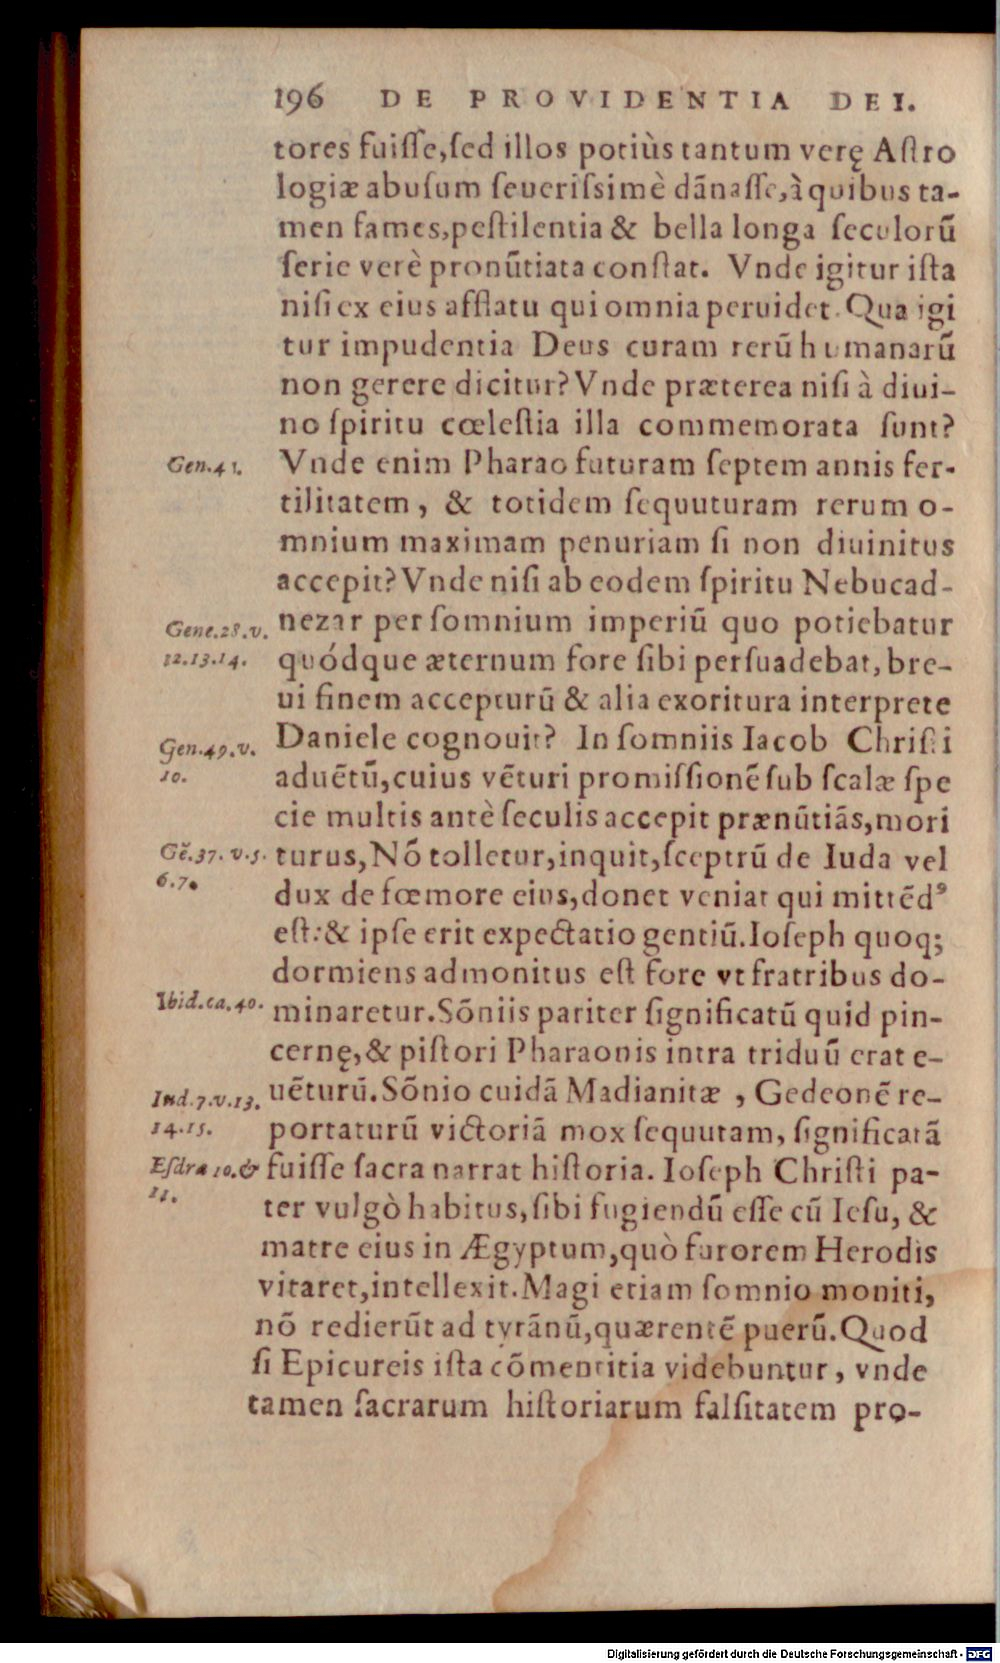 196 DE PROVIDENTIA DEI.
tores fuiſſe,ſed illos potiùs tantum verę Aſtro
logiæ abuſum ſeueriſsimè dãnaſſe,à quibus ta-
men fames,peſtilentia & bella longa ſeculorũ
ſerie verè pronũtiata conſtat. Vnde igitur iſta
niſi ex eius afflatu qui omnia peruidet. Qua igi
tur impudentia Deus curam rerũ humanarũ
non gerere dicitur? Vnde præterea niſi à diui-
no ſpiritu cœleſtia illa commemorata ſunt?
Gen.41.
Vnde enim Pharao futuram ſeptem annis fer-
tilitatem, & totidem ſequuturam rerum o-
mnium maximam penuriam ſi non diuinitus
accepit? Vnde niſi ab eodem ſpiritu Nebucad-
Gene.28.v.
12.13.14.
nezar per ſomnium imperiũ quo potiebatur
quódque æternum fore ſibi perſuadebat, bre-
ui finem accepturũ & alia exoritura interprete
Gen.49.v.
10.
Daniele cognouit? In ſomniis Iacob Chriſti
aduẽtũ,cuius vẽturi promiſſionẽ ſub ſcalæ ſpe
cie multis antè ſeculis accepit prænũtiãs,mori
Gẽ.37.v.5.
6.7.
turus,Nõ tolletur,inquit,ſceptrũ de Iuda vel
dux de fœmore eius,donet veniat qui mittẽdꝰ
eſt:& ipſe erit expectatio gentiũ.Ioſeph quoq;
dormiens admonitus eſt fore vt fratribus do-
Ibid.ca.40.
minaretur.Sõniis pariter ſignificatũ quid pin-
cernę,& piſtori Pharaonis intra triduũ erat e-
Iud.7.v.13.
14.15.
uẽturũ.Sõnio cuidã Madianitæ , Gedeonẽ re-
portaturũ victoriã mox ſequutam, ſignificatã
Eſdræ 10.&
11.
fuiſſe ſacra narrat hiſtoria. Ioſeph Chriſti pa-
ter vulgò habitus,ſibi fugiendũ eſſe cũ Ieſu, &
matre eius in Ægyptum,quò furorem Herodis
vitaret,intellexit.Magi etiam ſomnio moniti,
nõ redierũt ad tyrãnũ,quærentẽ puerũ.Quod
ſi Epicureis iſta cõmentitia videbuntur, vnde
tamen ſacrarum hiſtoriarum falſitatem pro-
Digitalisierung gefördert durch die Deutsche Forschungsgemeinschaft - DFG